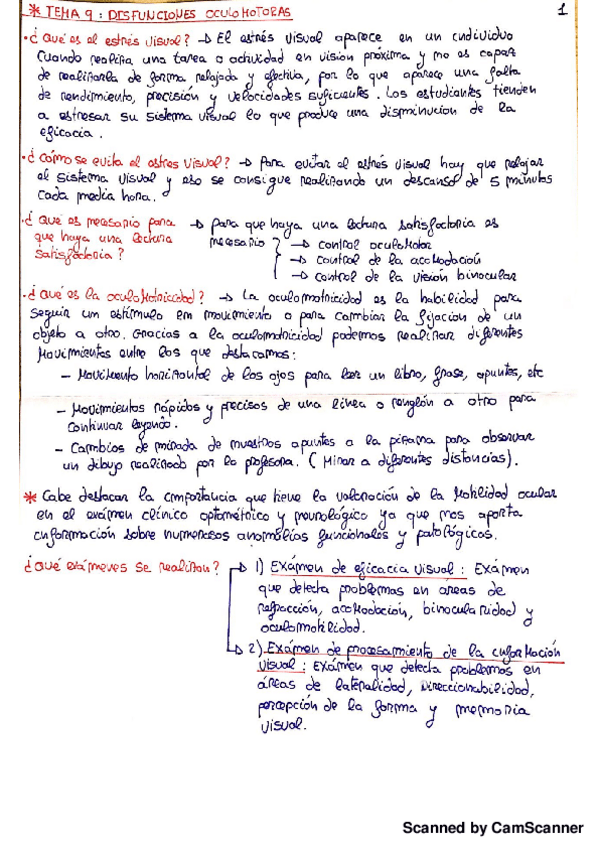 * TEMA 9: DISFUNCIONES OCULOMOTORAS 1
· ¿Qué es el estrés visual? → El estrés visual aparece en un individuo
cuando realiza una tarea o actividad en visión próxima y no es capaz
de realizarla de forma relajada y efectiva, por lo que aparece una falta
de rendimiento, precisión y velocidades suficientes. Los estudiantes tienden
a estresar su sistema visual lo que produce una disminución de la
eficacia.
· ¿Cómo se evita el estres visual? → Para evitar el estrés visual hay que relajar
el sistema visual y eso se consigue realizando un descanso de 5 minutos
cada media hora.
· ¿Qué es necesario para → Para que haya una lectura satisfactoria es
que haya una lectura necesario → control oculomotor
satisfactoria? → control de la acomodación
→ control de la visión binocular
· ¿Qué es la oculomotricidad? → La oculomotricidad es la habilidad para
seguir un estímulo en movimiento o para cambiar la fijación de un
objeto a otro. Gracias a la oculomotricidad podemos realizar diferentes
movimientos entre los que destacamos:
- Movimiento horizontal de los ojos para leer un libro, frase, apuntes, etc
- Movimientos rápidos y precisos de una línea o renglón a otro para
continuar leyendo.
- Cambios de mirada de nuestros apuntes a la pizarra para observar
un dibujo realizado por la profesora. (Mirar a diferentes distancias).
* Cabe destacar la importancia que tiene la valoración de la motilidad ocular
en el exámen clínico optométrico y neurológico ya que nos aporta
información sobre numerosas anomalías funcionales y patológicas.
¿Qué exámenes se realizan? → 1) Exámen de eficacia visual: Exámen
que detecta problemas en áreas de
refracción, acomodación, binocularidad y
oculomotilidad.
→ 2) Exámen de procesamiento de la información
visual: Exámen que detecta problemas en
áreas de lateralidad, direccionabilidad,
percepción de la forma y memoria
visual.
Scanned by CamScanner